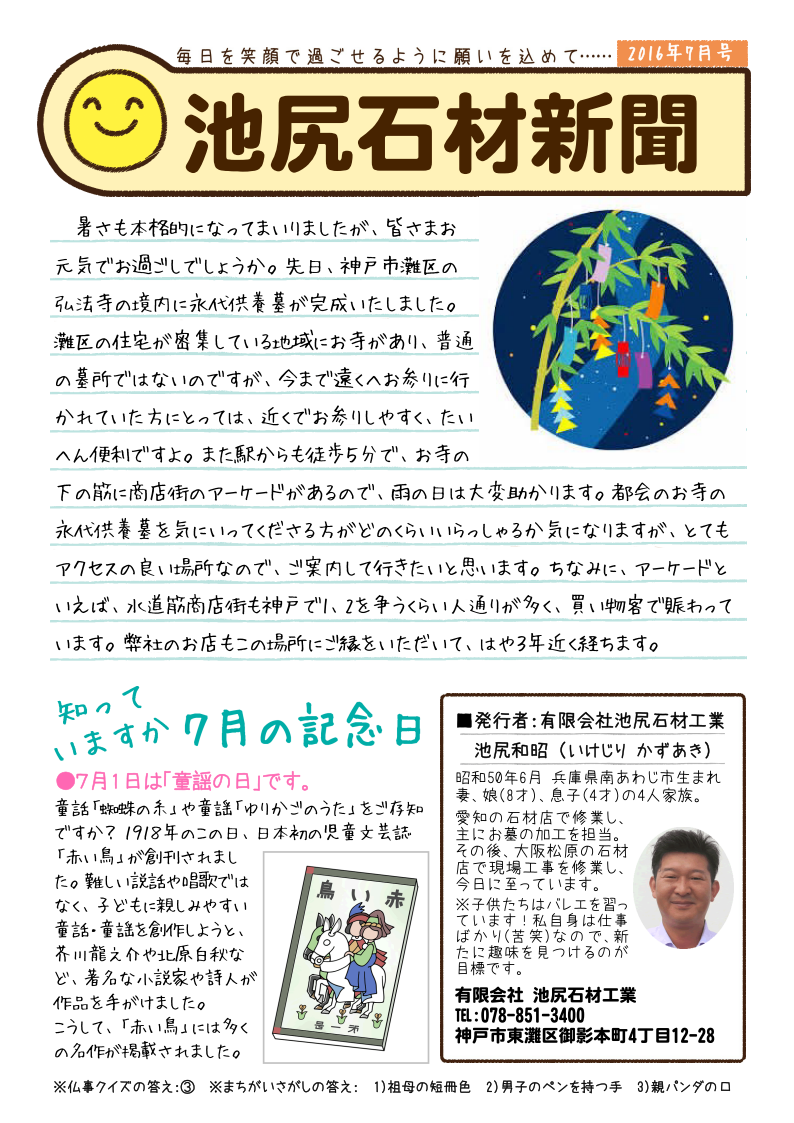 毎日を笑顔で過ごせるように願いを込めて……
2016年7月号
池尻石材新聞
暑さも本格的になってまいりましたが、皆さまお
元気でお過ごしでしょうか。先日、神戸市灘区の
弘法寺の境内に永代供養墓が完成いたしました。
灘区の住宅が密集している地域にお寺があり、普通
の墓所ではないのですが、今まで遠くへお参りに行
かれていた方にとっては、近くでお参りしやすく、たい
へん便利ですよ。また駅からも徒歩5分で、お寺の
下の筋に商店街のアーケードがあるので、雨の日は大変助かります。都会のお寺の
永代供養墓を気にいってくださる方がどのくらいいらっしゃるか気になりますが、とても
アクセスの良い場所なので、ご案内して行きたいと思います。ちなみに、アーケードと
いえば、水道筋商店街も神戸で1、2を争うくらい人通りが多く、買い物客で賑わって
います。弊社のお店もこの場所にご縁をいただいて、はや3年近く経ちます。
知って
いますか
7月の記念日
●7月1日は「童謡の日」です。
童話「蜘蛛の糸」や童謡「ゆりかごのうた」をご存知
ですか？ 1918年のこの日、日本初の児童文芸誌
「赤い鳥」が創刊されまし
た。難しい説話や唱歌では
なく、子どもに親しみやすい
童話・童謡を創作しようと、
芥川龍之介や北原白秋な
ど、著名な小説家や詩人が
作品を手がけました。
こうして、「赤い鳥」には多く
の名作が掲載されました。
鳥い赤
号一第
■発行者:有限会社池尻石材工業
池尻和昭（いけじり かずあき）
昭和50年6月 兵庫県南あわじ市生まれ
妻、娘(8才)、息子(4才)の4人家族。
愛知の石材店で修業し、
主にお墓の加工を担当。
その後、大阪松原の石材
店で現場工事を修業し、
今日に至っています。
※子供たちはバレエを習っ
ています！私自身は仕事
ばかり(苦笑)なので、新
たに趣味を見つけるのが
目標です。
有限会社 池尻石材工業
TEL:078-851-3400
神戸市東灘区御影本町4丁目12-28
※仏事クイズの答え:③ ※まちがいさがしの答え: 1)祖母の短冊色 2)男子のペンを持つ手 3)親パンダの口